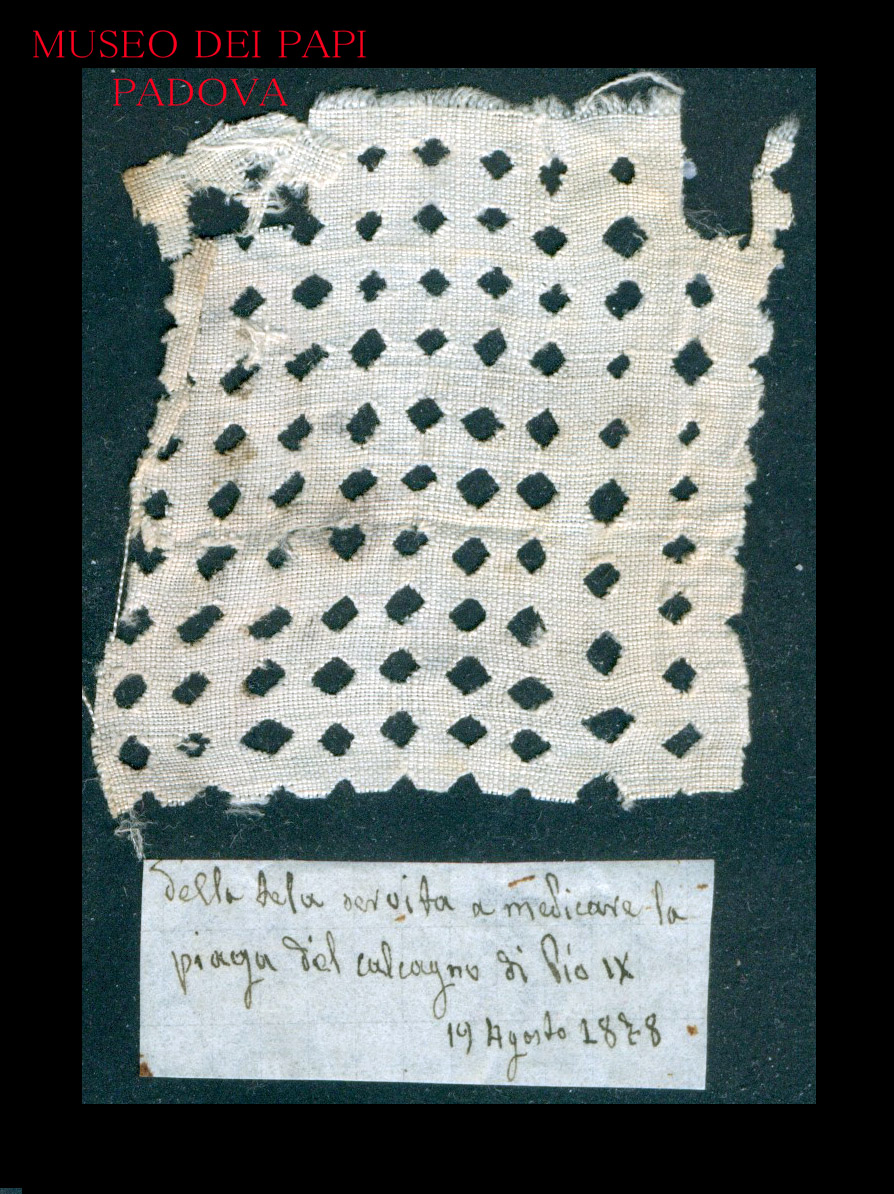 MUSEO DEI PAPI
PADOVA
della tela servita a medicare la
piaga del calcagno di Pio IX
19 Agosto 1878